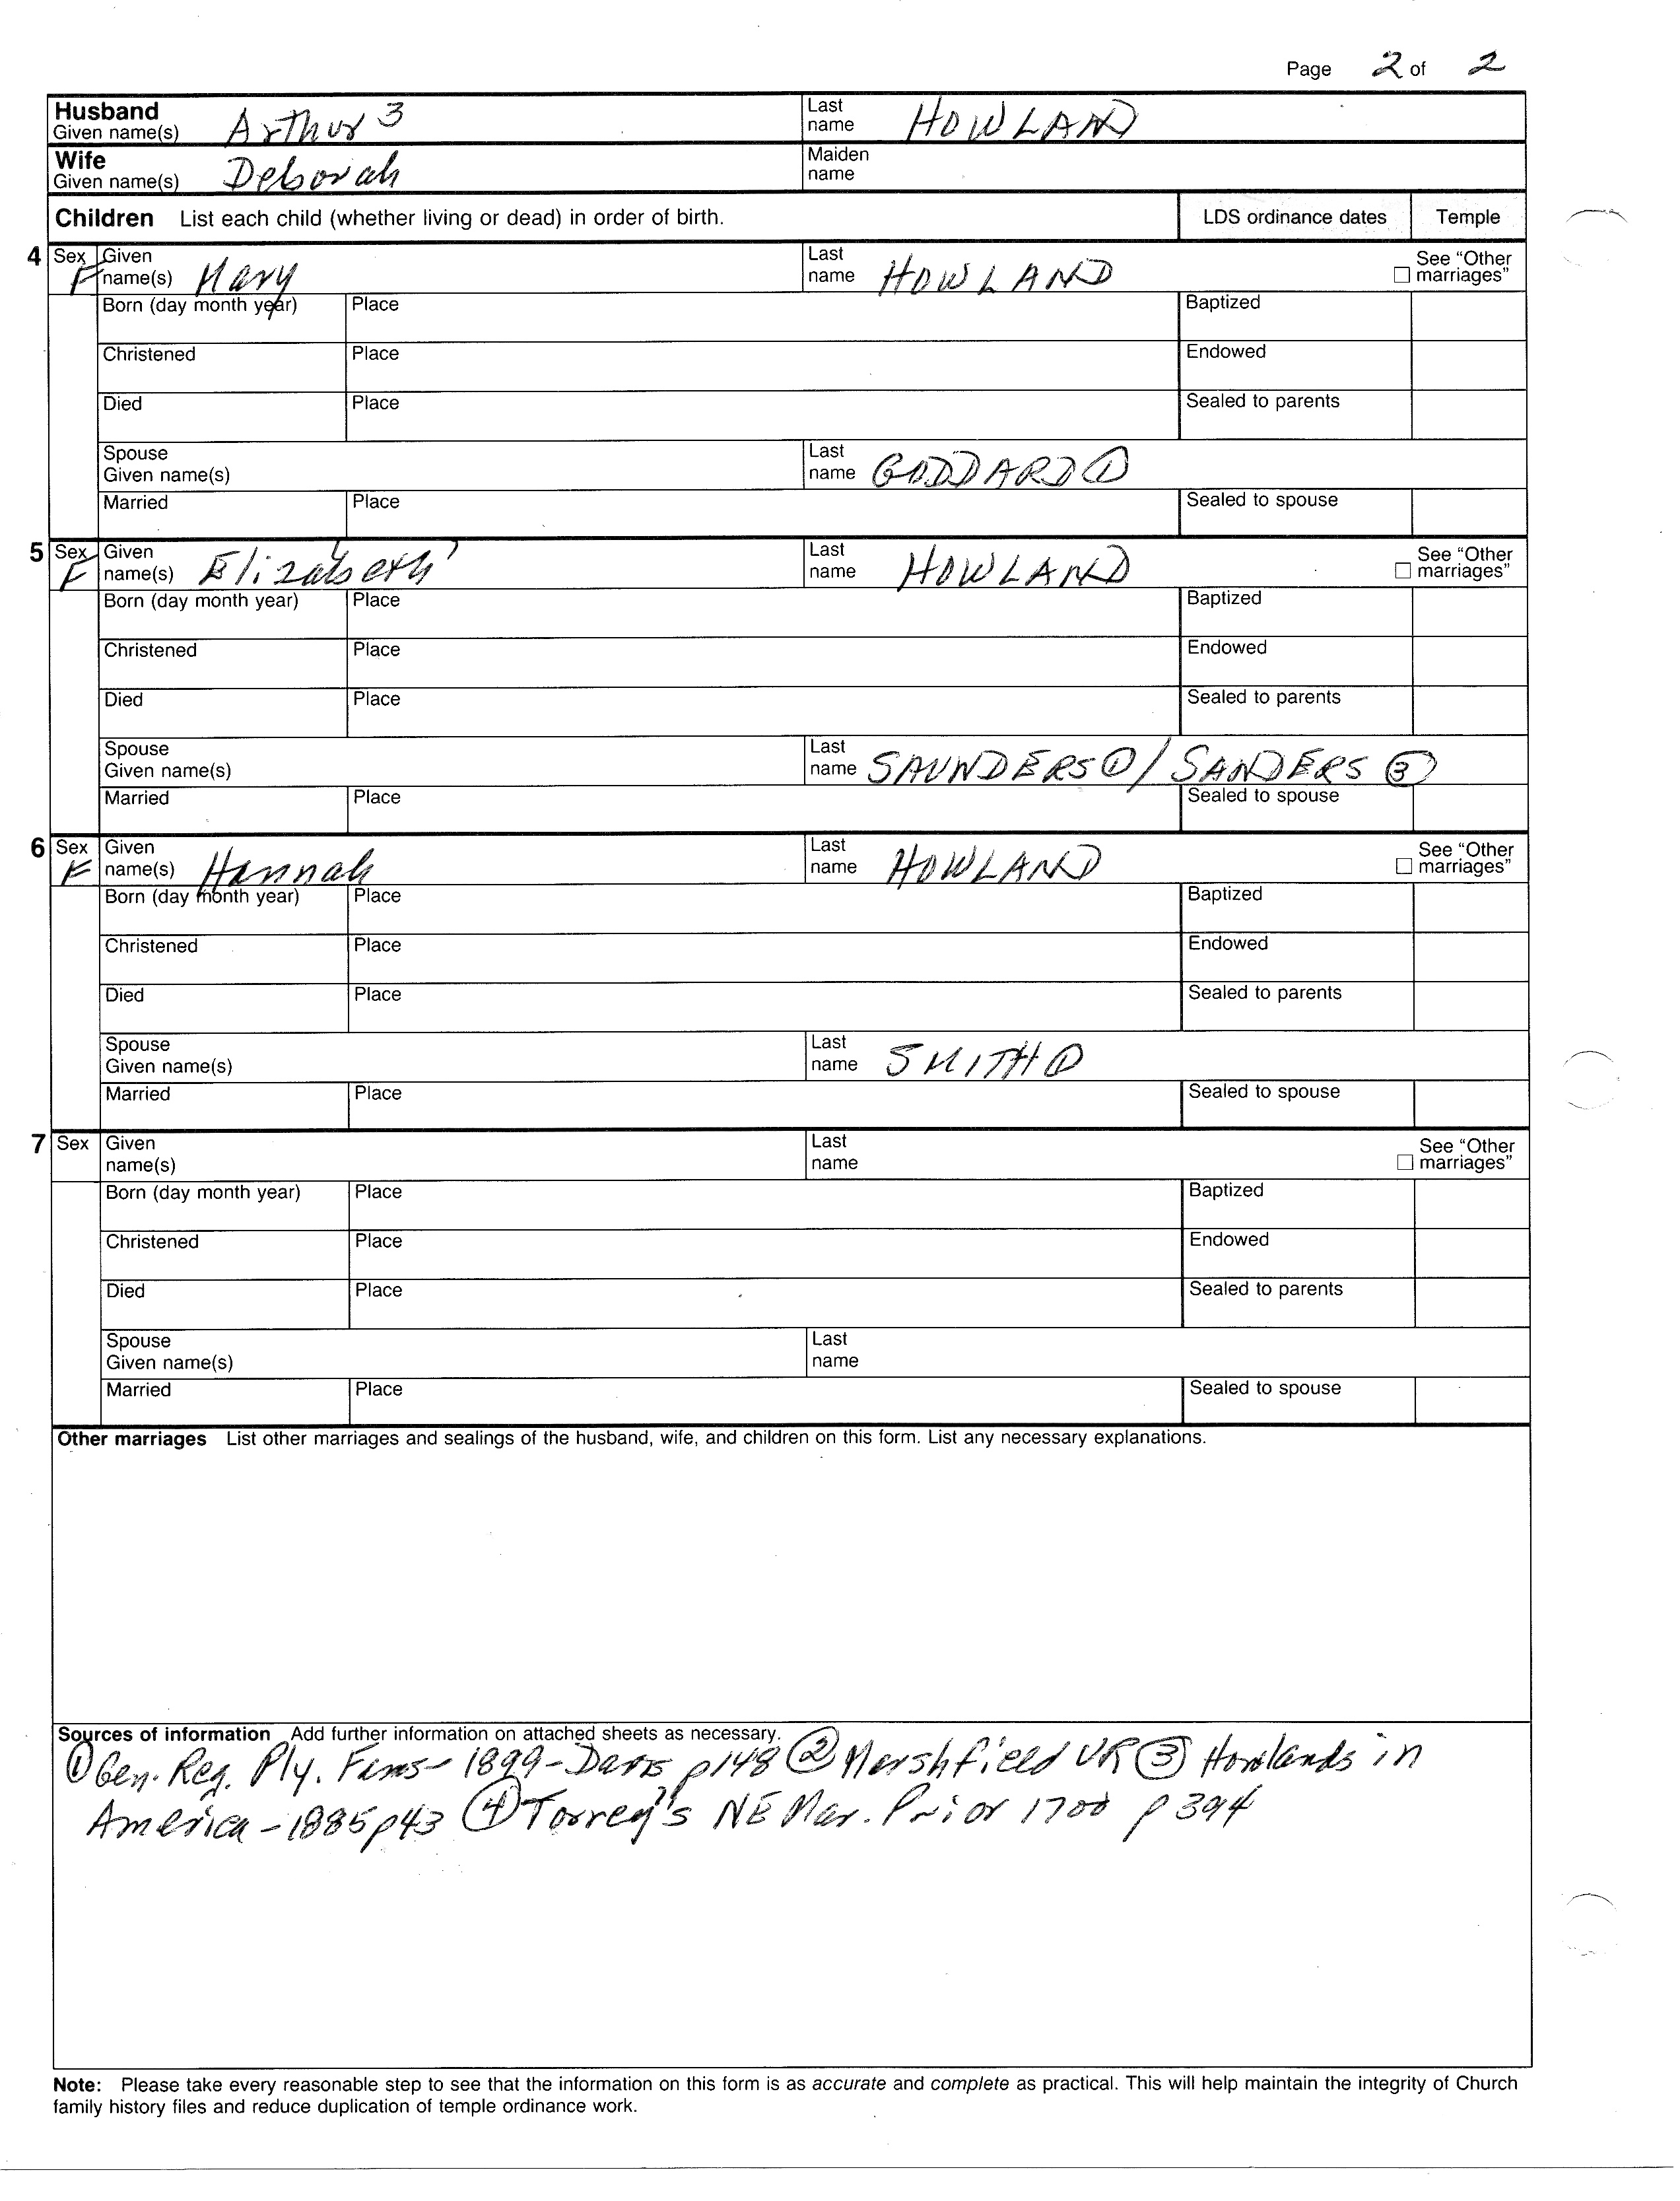 Page 2 of 2
Husband
Given name(s) Arthur 3 Last name HOWLAND
Wife
Given name(s) Deborah Maiden name
Children List each child (whether living or dead) in order of birth. LDS ordinance dates Temple
4 Sex F Given name(s) Mary Last name HOWLAND See "Other marriages"
Born (day month year) Place Baptized
Christened Place Endowed
Died Place Sealed to parents
Spouse Given name(s) Last name GODDARD ①
Married Place Sealed to spouse
5 Sex F Given name(s) Elizabeth Last name HOWLAND See "Other marriages"
Born (day month year) Place Baptized
Christened Place Endowed
Died Place Sealed to parents
Spouse Given name(s) Last name SAUNDERS ① / SANDERS ③
Married Place Sealed to spouse
6 Sex F Given name(s) Hannah Last name HOWLAND See "Other marriages"
Born (day month year) Place Baptized
Christened Place Endowed
Died Place Sealed to parents
Spouse Given name(s) Last name SMITH ①
Married Place Sealed to spouse
7 Sex Given name(s) Last name See "Other marriages"
Born (day month year) Place Baptized
Christened Place Endowed
Died Place Sealed to parents
Spouse Given name(s) Last name
Married Place Sealed to spouse
Other marriages List other marriages and sealings of the husband, wife, and children on this form. List any necessary explanations.
Sources of information Add further information on attached sheets as necessary.
① Gen. Reg. Ply. Fams - 1899 - Davis p148 ② Marshfield VR ③ Howlands in
America - 1885 p43 ④ Torrey's NE Mar. Prior 1700 p 394
Note: Please take every reasonable step to see that the information on this form is as accurate and complete as practical. This will help maintain the integrity of Church
family history files and reduce duplication of temple ordinance work.